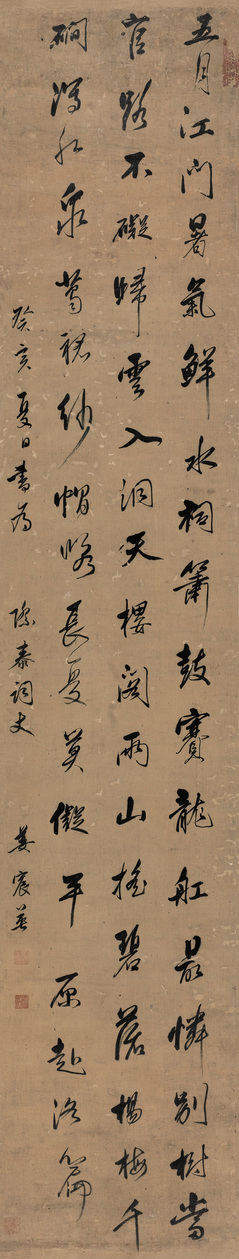 五月江門暑氣鮮水祠簫鼓賽龍舡最憐別樹當
官路不礙歸雲入洞天樓閣兩山搖碧落楊梅千
磵瀉紅泉葛裙紗帽長夏莫儗平原赴洛篇
癸亥夏日書為 泰詞丈 姜宸英